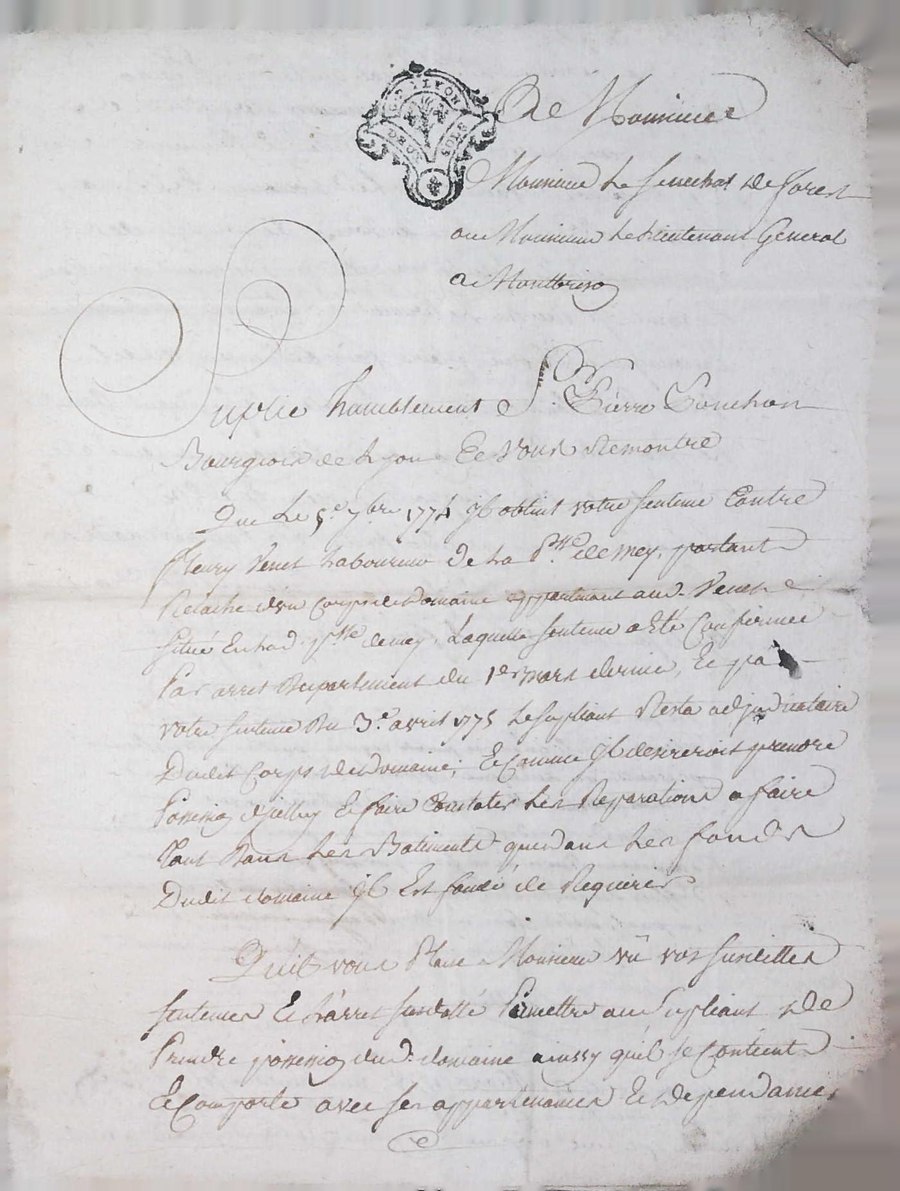 GD LYON
A Monsieur
Monsieur Le Senechal de forest
ou Monsieur Le Lieutenant General
a Montbrison
Suplie humblement Sr. Pierre Ponchon
Bourgeois de Lyon Et vous Remontre
Que Le 5e. 7bre 1774 il obtint votre sentence Contre
fleury Venet Laboureur de La P.sse de mey, portant
Relache d'un Corps de Domaine appartenant aud. Venet
situé En lad. p.sse de mey, Laquelle sentence a Eté Confirmée
Par arret du parlement du 1er mars dernier, Et par
votre sentence du 3e. avril 1775 Le supliant Resta adjudicataire
Dudit Corps de Domaine; Et Comme il desireroit prendre
Possession d'jcelluy Et faire Constater Les Reparations a faire
Tant Dans Les Batiments que dans Les fonds
Dudit domaine il Est fondé de Requerir
Qu'il vous Plaise Monsieur vû vos susdittes
sentences Et L'arret susdatté Permettre au supliant De
Prendre possession dud. domaine ainssy qu'il se Contient
Et Comporte avec ses appartenances Et Dependances